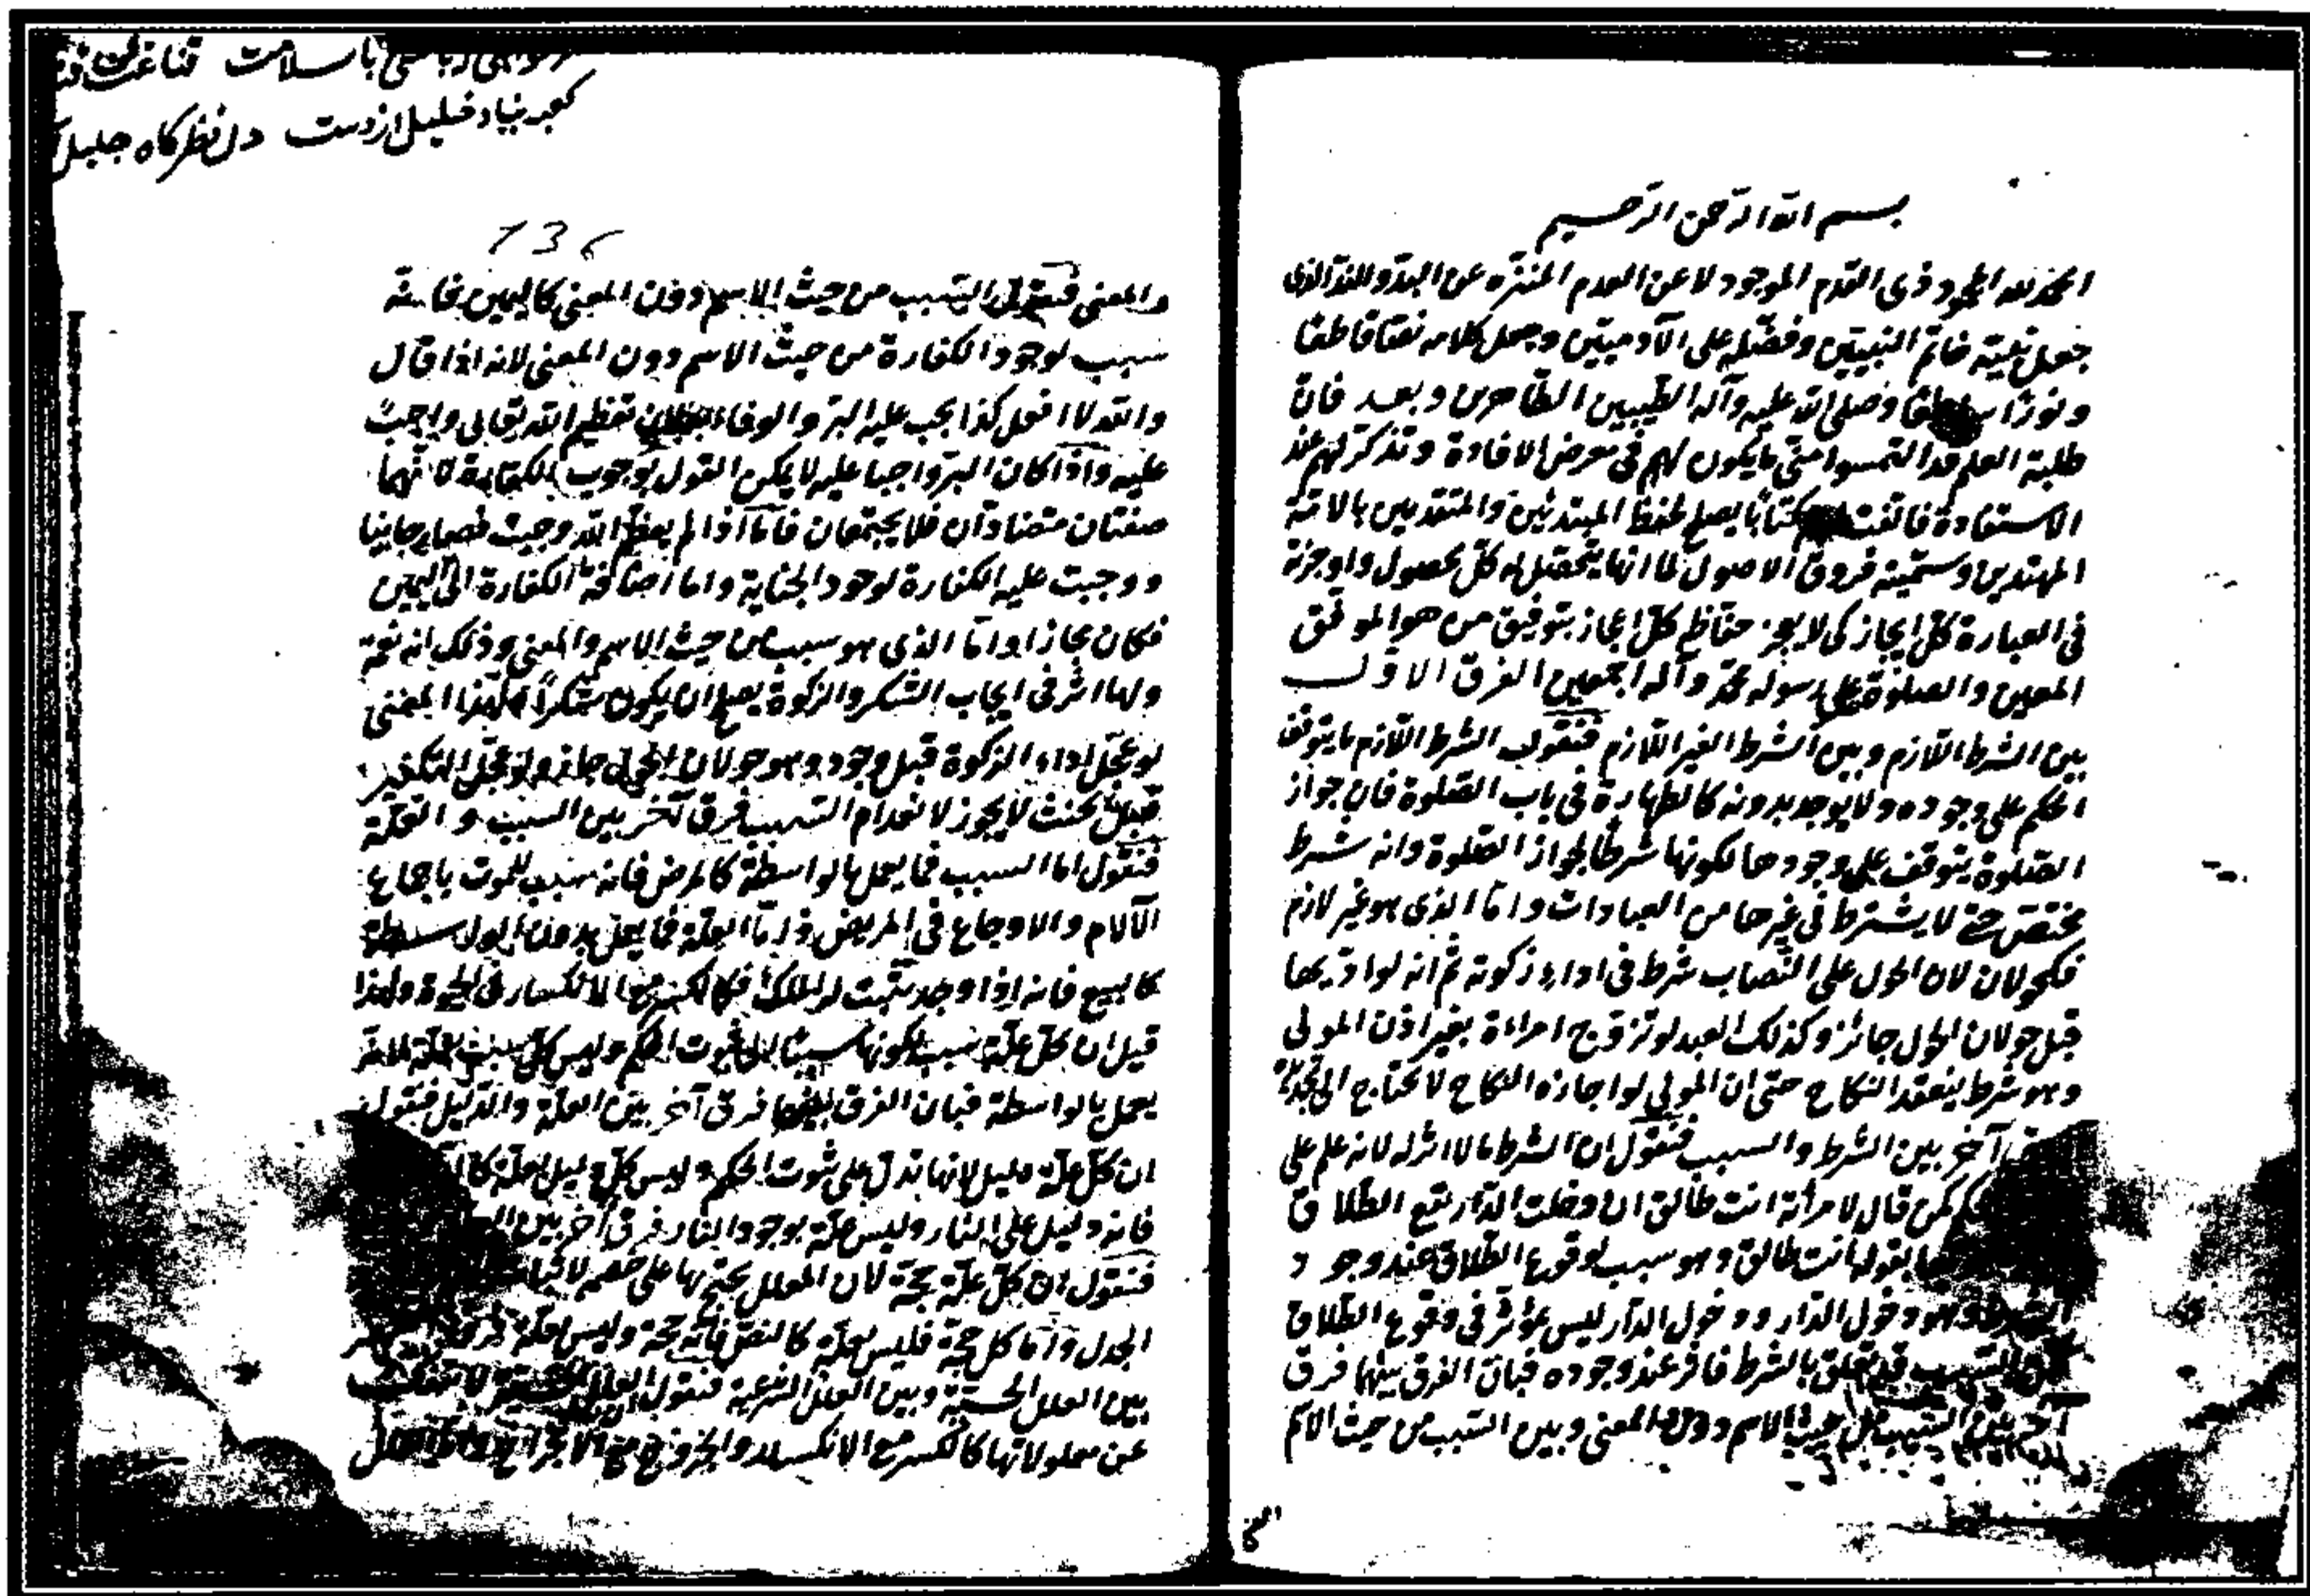 بسم الله الرحمن الرحيم
الحمد لله المحمود ذى القدم الموجود لا عن العدم المنزه عن البدو والند الذى
جعل نبيه خاتم النبيين وفضله على الآدميين وجعل كلامه نصا قاطعا
ونورا ساطعا وصلى الله عليه وآله الطيبين الطاهرين وبعد فان
طلبة العلم قد التمسوا منى ما يكون لهم فى معرض الافادة وتذكرة لهم عند
الاستفادة فالفت كتابا يصلح لحفظ المبتدئين والمتقدمين بالائمة
المهتدين وسميته فروق الاصول لما انها يتحصل له كل محصول واوجزته
فى العبارة كل ايجاز كى لا يعجز حفاظه كل اعجاز بتوفيق من هو الموفق
المعين والصلوة على رسوله محمد وآله اجمعين الفرق الاول
بين الشرط اللازم وبين الشرط الغير اللازم فنقول الشرط اللازم ما يتوقف
الحكم على وجوده ولا يوجد بدونه كالطهارة فى باب الصلوة فان جواز
الصلوة يتوقف على وجودها لكونها شرطا لجواز الصلوة وانه شرط
مختص حتى لا يشترط فى غيرها من العبادات واما الذى هو غير لازم
فكحولان لان الحول على النصاب شرط فى اداء زكوته ثم انه لو اديها
قبل حولان الحول جائز وكذلك العبد لو تزوج امراءة بغير اذن المولى
وهو شرط ينعقد النكاح حتى ان المولى لو اجازه النكاح لا يحتاج الى تجديد
آخر بين الشرط والسبب فنقول ان الشرط ما لا اثر له لانه علم على
كمن قال لامرأته انت طالق ان دخلت الدار يقع الطلاق
بقوله انت طالق وهو سبب لوقوع الطلاق عند وجود
الشرط وهو دخول الدار ودخول الدار ليس بمؤثر فى وقوع الطلاق
السبب قد تعلق بالشرط فاثر عند وجوده فبان الفرق بينهما فرق
آخر بين السبب من حيث الاسم دون المعنى وبين السبب من حيث الاسم
كعبه بنياد خليل ازدست دل نظرگاه جليل
136
والمعنى فنقول السبب من حيث الاسم دون المعنى كاليمين فانه
سبب لوجود الكفارة من حيث الاسم دون المعنى لانه اذا قال
والله لا افعل كذا يجب عليه البر والوفاء تعظيم الله تعالى واجب
عليه واذا كان البر واجبا عليه لا يمكن القول بوجوب الكفارة لانهما
صفتان متضادتان فلا يجتمعان فاما اذا لم يعظم الله وحنث فصار جانيا
ووجبت عليه الكفارة لوجود الجناية واما اضافة الكفارة الى اليمين
فكان مجازا واما الذى هو سبب من حيث الاسم والمعنى وذلك انه نعمة
ولها اثر فى ايجاب الشكر والزكوة يصلح ان يكون شكرا فلهذا المعنى
لو عجل اداء الزكوة قبل وجوده وهو حولان الحول جاز ولو عجل التكفير
قبل حنث لا يجوز لانعدام السبب فرق آخر بين السبب والعلة
فنقول اما السبب فما يعمل بالواسطة كالمرض فانه سبب للموت باجماع
الآلام والاوجاع فى المريض واما العلة فما يعمل بدون الواسطة
كالبيع فانه اذا وجد يثبت له الملك كالكسر مع الانكسار ولهذا
قيل ان كل علة سبب لكونها سببا الى ثبوت الحكم وليس كل سبب بعلة لانه
يعمل بالواسطة فبان الفرق بينهما فرق آخر بين العلة والدليل فنقول
ان كل علة دليل لانها تدل على ثبوت الحكم وليس كل دليل بعلة
فانه دليل على النار وليس علة بوجود النار فرق آخر بين
فنقول ان كل علة حجة لان المعلل يحتج بها على خصمه
الجدل واما كل حجة فليس بعلة كالنص فانه حجة وليس بعلة
بين العلل الحسية وبين العلل الشرعية فنقول العلل الحسية لا
عن معلولاتها كالكسر مع الانكسار والجرح مع الانجراح